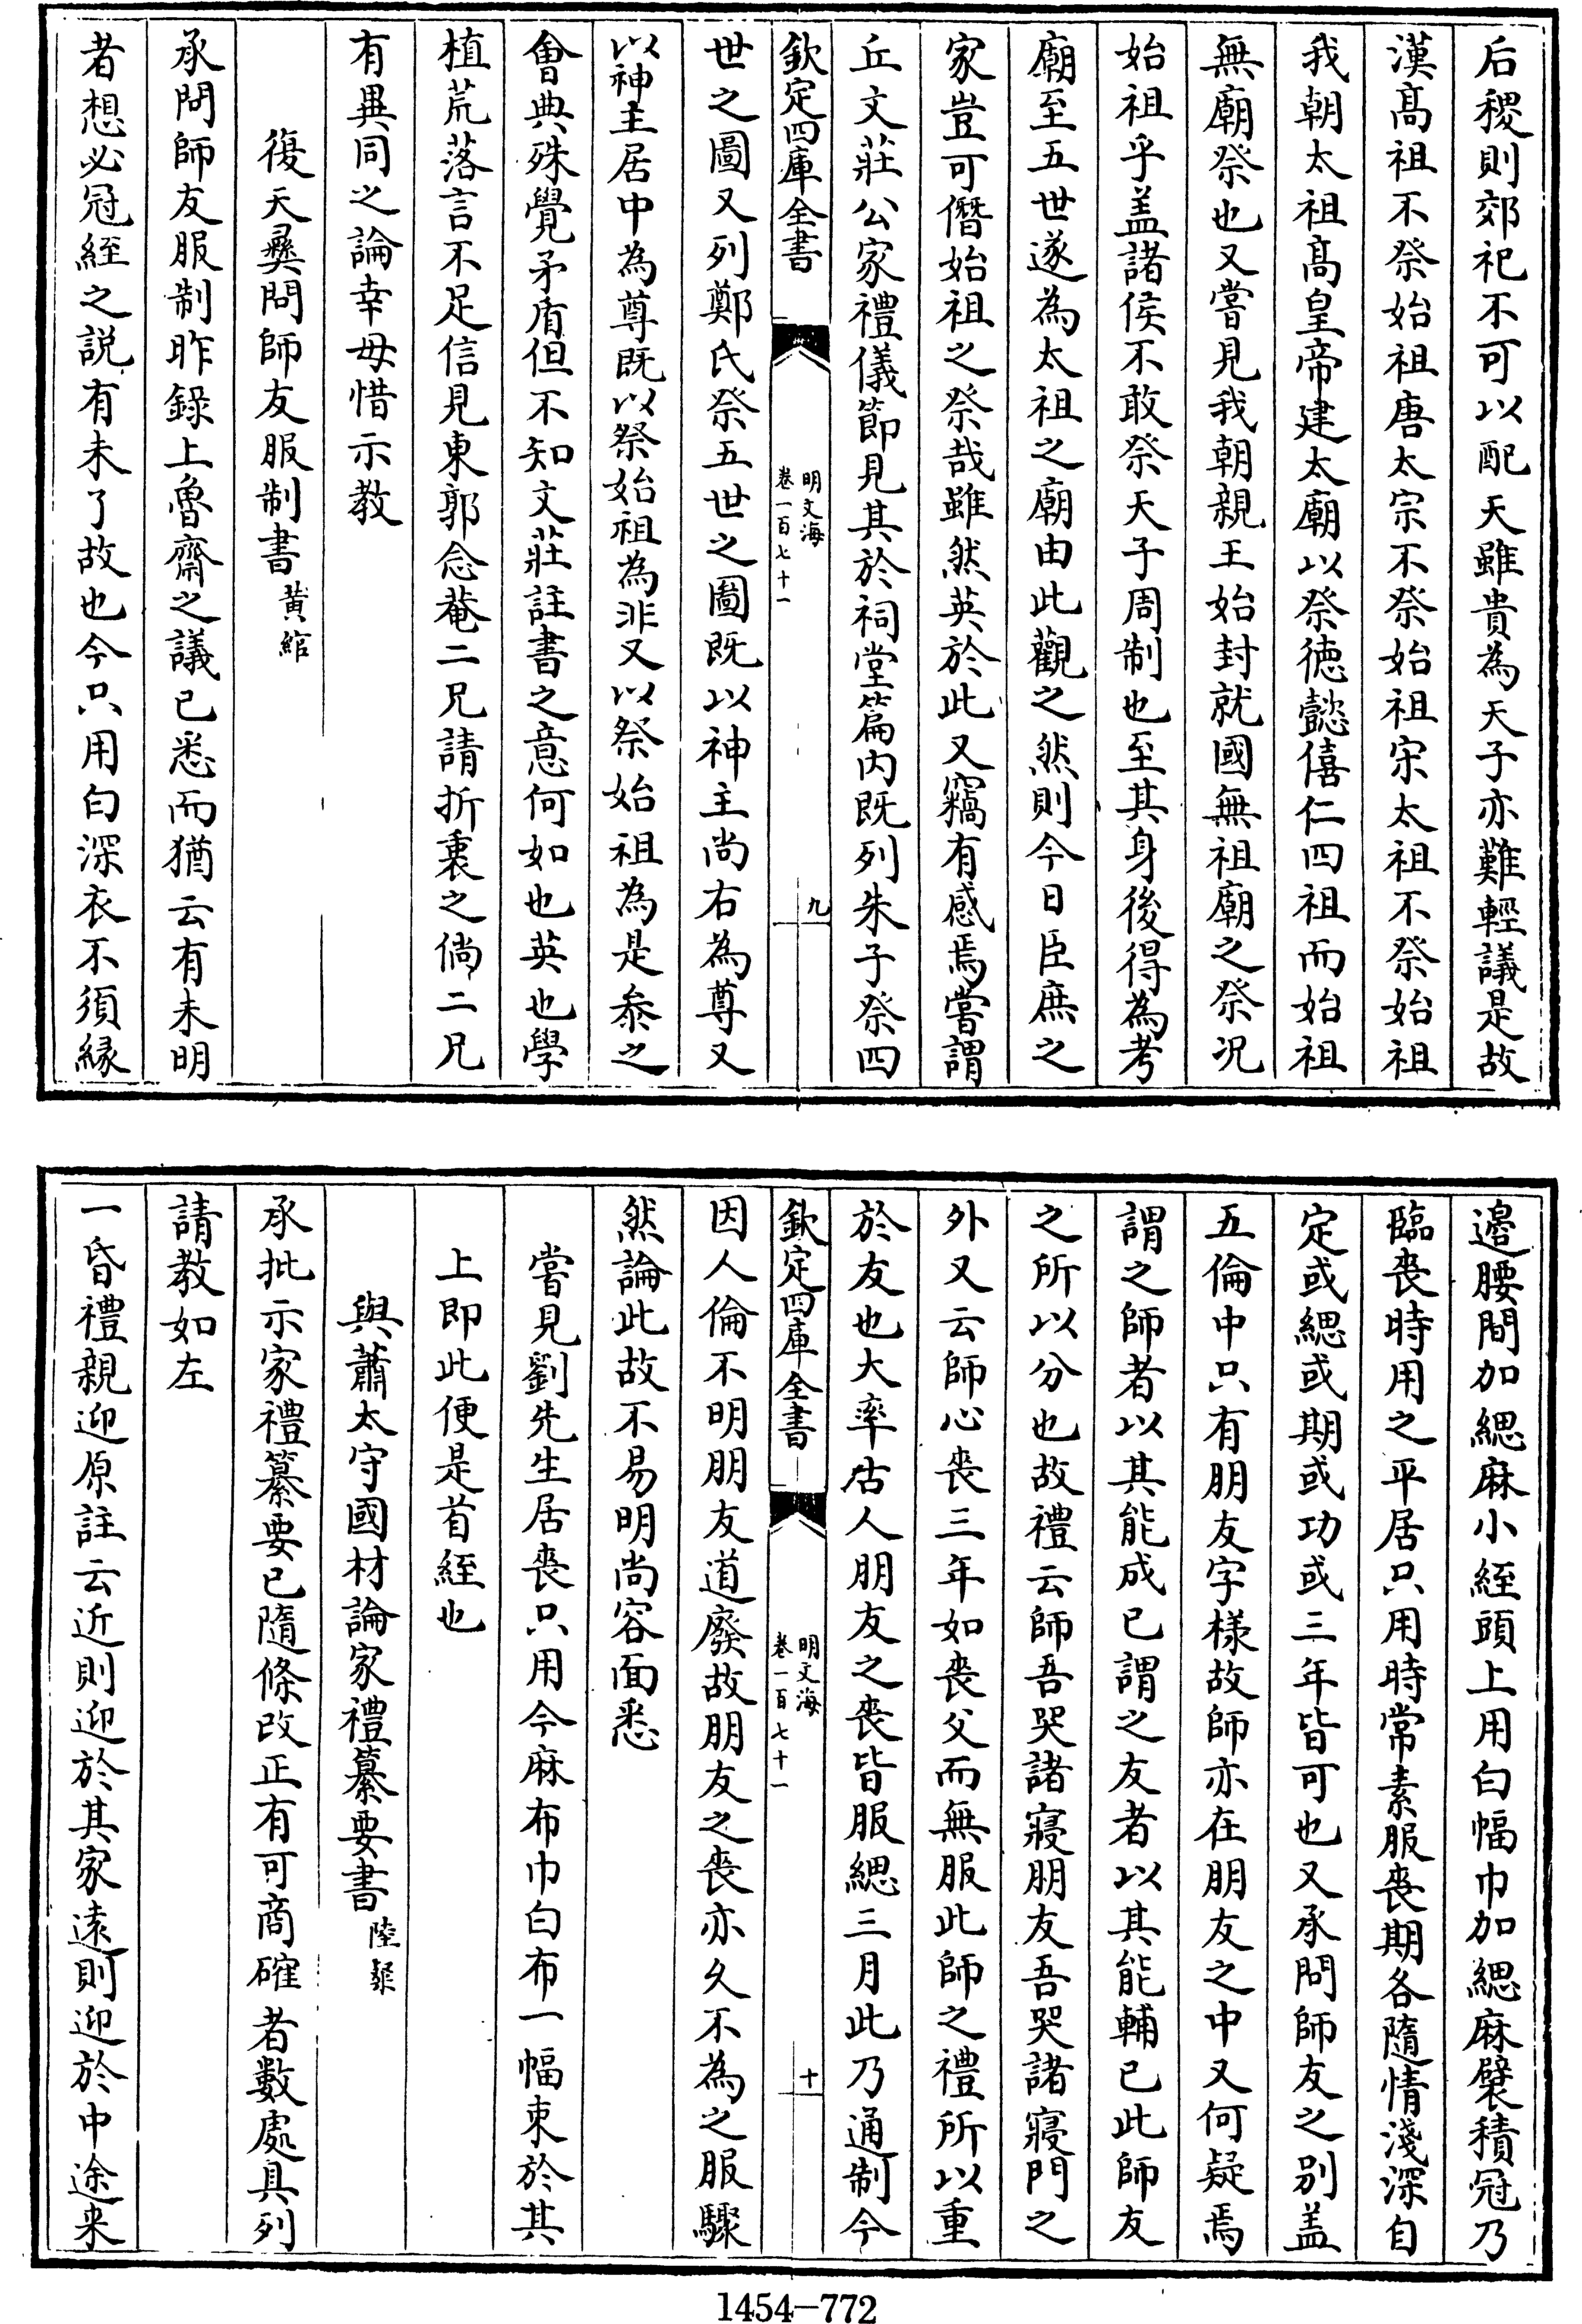 后稷則郊祀不可以配天雖貴為天子亦難輕議是故
漢髙祖不祭始祖唐太宗不祭始祖宋太祖不祭始祖
我朝太祖髙皇帝建太廟以祭徳懿僖仁四祖而始祖
無廟祭也又嘗見我朝親王始封就國無祖廟之祭况
始祖乎盖諸侯不敢祭天子周制也至其身後得為考
廟至五世遂為太祖之廟由此觀之然則今日臣庶之
家豈可僭始祖之祭哉雖然英於此又竊有感焉嘗謂
丘文莊公家禮儀節見其於祠堂篇内既列朱子祭四
欽定四庫全書
明文海
卷一百七十一
九
世之圖又列鄭氏祭五世之圖既以神主尚右為尊又
以神主居中為尊既以祭始祖為非又以祭始祖為是叅之
㑹典殊覺矛盾但不知文莊註書之意何如也英也學
植荒落言不足信見東郭念菴二兄請折裏之倘二兄
有異同之論幸毋惜示教
復天彞問師友服制書黄綰
承問師友服制昨錄上魯齋之議已悉而猶云有未明
者想必冠絰之説有未了故也今只用白深衣不須縁
邉腰間加緦麻小絰頭上用白幅巾加緦麻襞積冠乃
臨喪時用之平居只用時常素服喪期各隨情淺深自
定或緦或期或功或三年皆可也又承問師友之别盖
五倫中只有朋友字様故師亦在朋友之中又何疑焉
謂之師者以其能成已謂之友者以其能輔已此師友
之所以分也故禮云師吾哭諸寢朋友吾哭諸寢門之
外又云師心喪三年如喪父而無服此師之禮所以重
於友也大率古人朋友之喪皆服緦三月此乃通制今
欽定四庫全書
明文海
卷一百七十一
十
因人倫不明朋友道廢故朋友之喪亦久不為之服驟
然論此故不易明尚容面悉
嘗見劉先生居喪只用今麻布巾白布一幅束於其
上即此便是首絰也
與蕭太守國材論家禮纂要書陸粲
承批示家禮纂要已隨條改正有可商確者數處具列
請教如左
一昏禮親迎原註云近則迎於其家逺則迎於中途来
1454-772